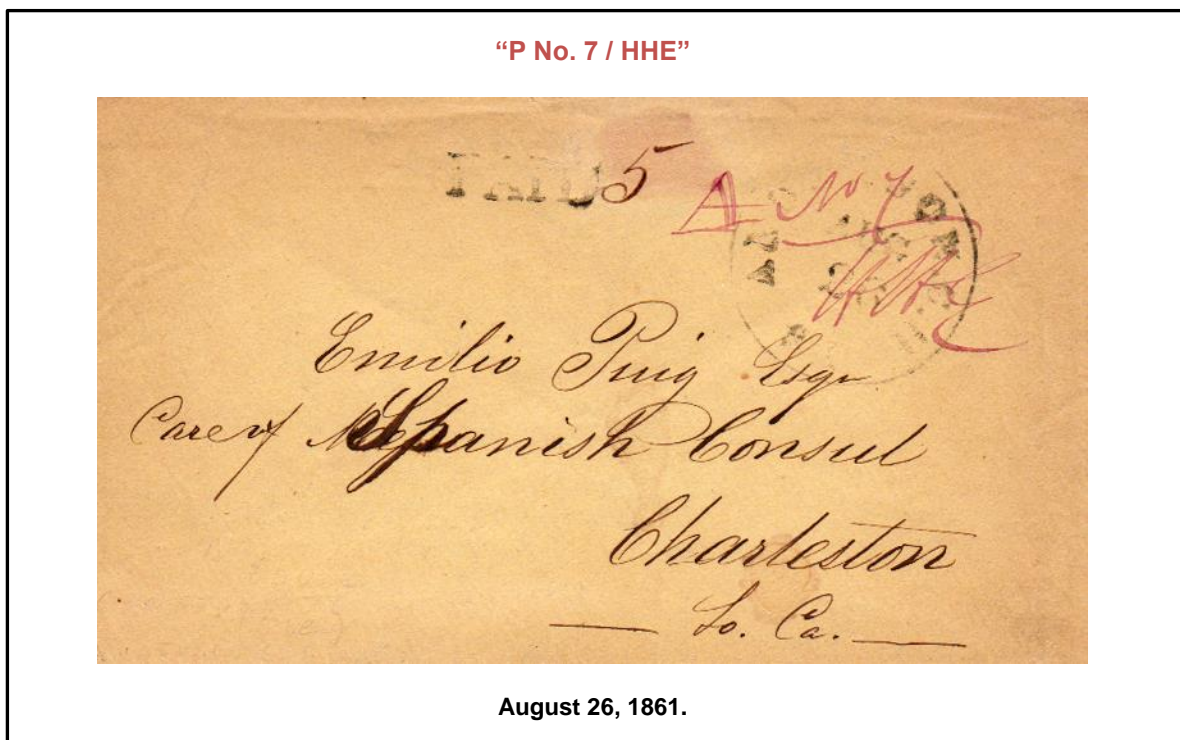 “P No. 7 / HHE”
PAID 5
A No 7
HHE
AUG
26
Emilio Puig Esqr
Care of Spanish Consul
Charleston
So. Ca.
August 26, 1861.